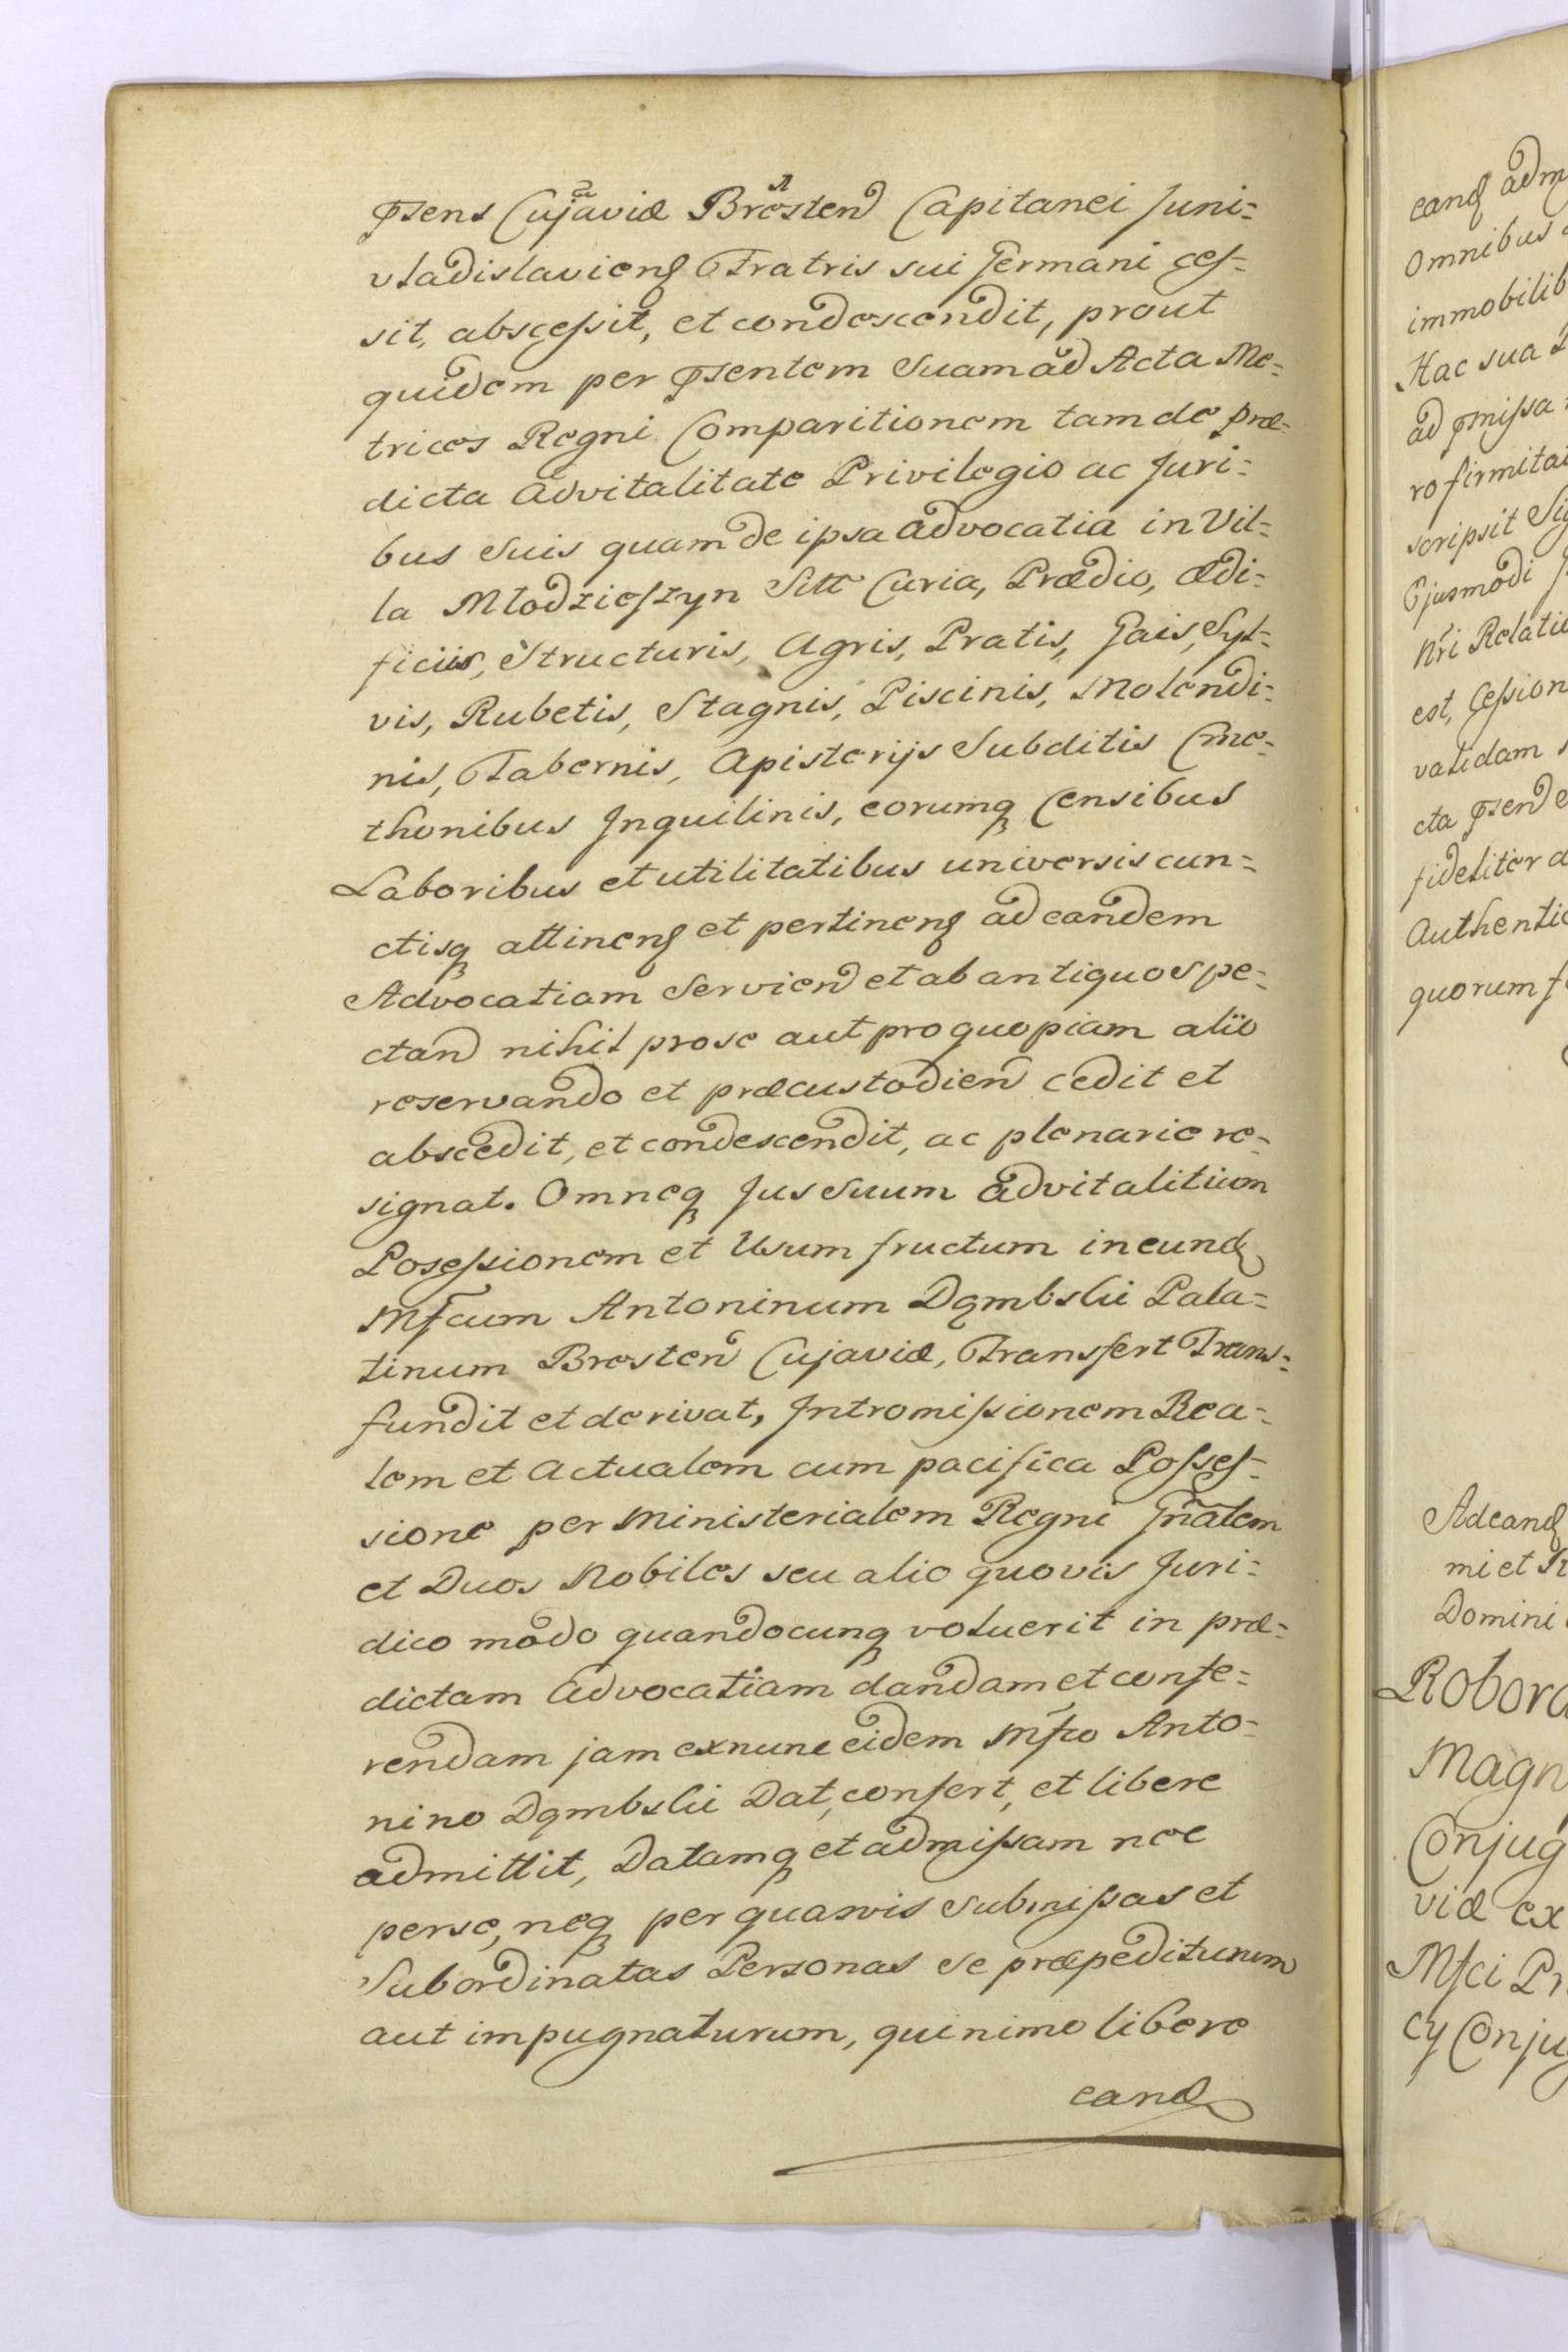 psens Cujaviæ Bresten Capitanei Juni=
vladislaviens Fratris sui Germani ces=
sit, abscessit, et condescendit, prout
quidem per psentem Suam ad Acta Me=
trices Regni Comparitionem tam de præ=
dicta Advitalitate Privilegio ac Juri=
bus Suis quam de ipsa advocatia in Vil=
la Młodzieszyn Sitt Curia, Prædio, ædi=
ficiis, Structuris, Agris, Pratis, Gais, Syl=
vis, Rubetis, Stagnis, Piscinis, Molendi=
nis, Tabernis, Apisterijs Subditis Cme=
thonibus Inquilinis, eorumq Censibus
Laboribus et utilitatibus universis cun=
ctisq attinens et pertinens ad eandem
Advocatiam Servien et ab antiquo Spe=
ctan nihil pro se aut pro quopiam alio
reservando et præcustodien cedit et
abscedit, et condescendit, ac plenarie re=
signat. Omneq Jus Suum advitalitium
Posessionem et Usum fructum in eund
Mfcum Antoninum Dąmbski Pala=
tinum Bresten Cujaviæ, Transfert Trans=
fundit et derivat, Intromissionem Rea=
lem et Actualem cum pacifica Posses=
sione per Ministerialem Regni Gnalem
et Duos Nobiles seu alio quovis Juri=
dico modo quandocunq voluerit in præ=
dictam Advocatiam dandam et confe=
rendam jam exnunc eidem Mfco Anto=
nino Dąmbski Dat, confert, et libere
admittit, Datamq et admissam nec
per se, neq per quasvis Submissas et
Subordinatas Personas Se præpediturum
aut impugnaturum, quinimo libere
eand
eand adm
Omnibus
immobilib
Hac sua
ad pmissa
ro firmita
scripsit Sig
Ejusmodi
Nri Relati
est, Cession
validam
cta psen
fideliter
Authentic
quorum
Ad eand
mi et
Domini
Robora
Magn
Conjug
viæ ex
Mfci
cy Conju